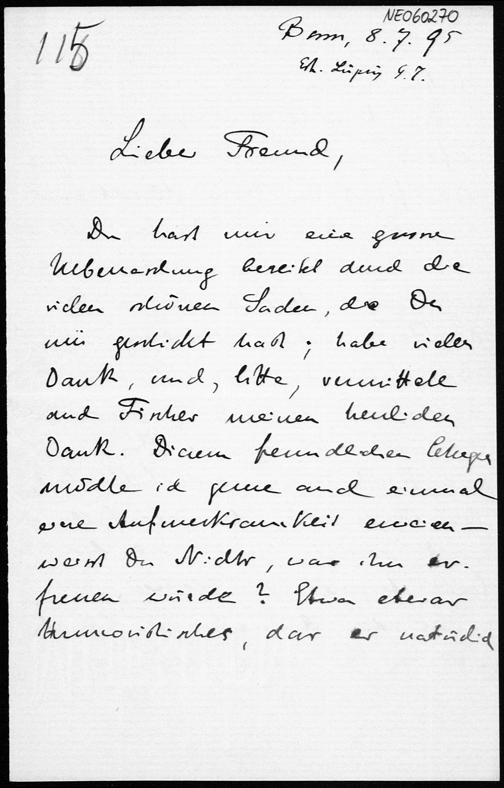 NE060270
115
Bonn, 8. 7. 95
Lieber Freund,
Du hast mir eine grosse
Überraschung bereitet durch die
vielen schönen Sachen, die Du
mir geschickt hast; habe vielen
Dank, und, bitte, vermittele
auch Fischer meinen herzlichen
Dank. Diesem freundlichen
möchte ich gerne auch einmal
eine Aufmerksamkeit erweisen –
weisst Du Nichts, was ihn er-
freuen würde? Etwa etwas
Humoristisches, das er natürlich